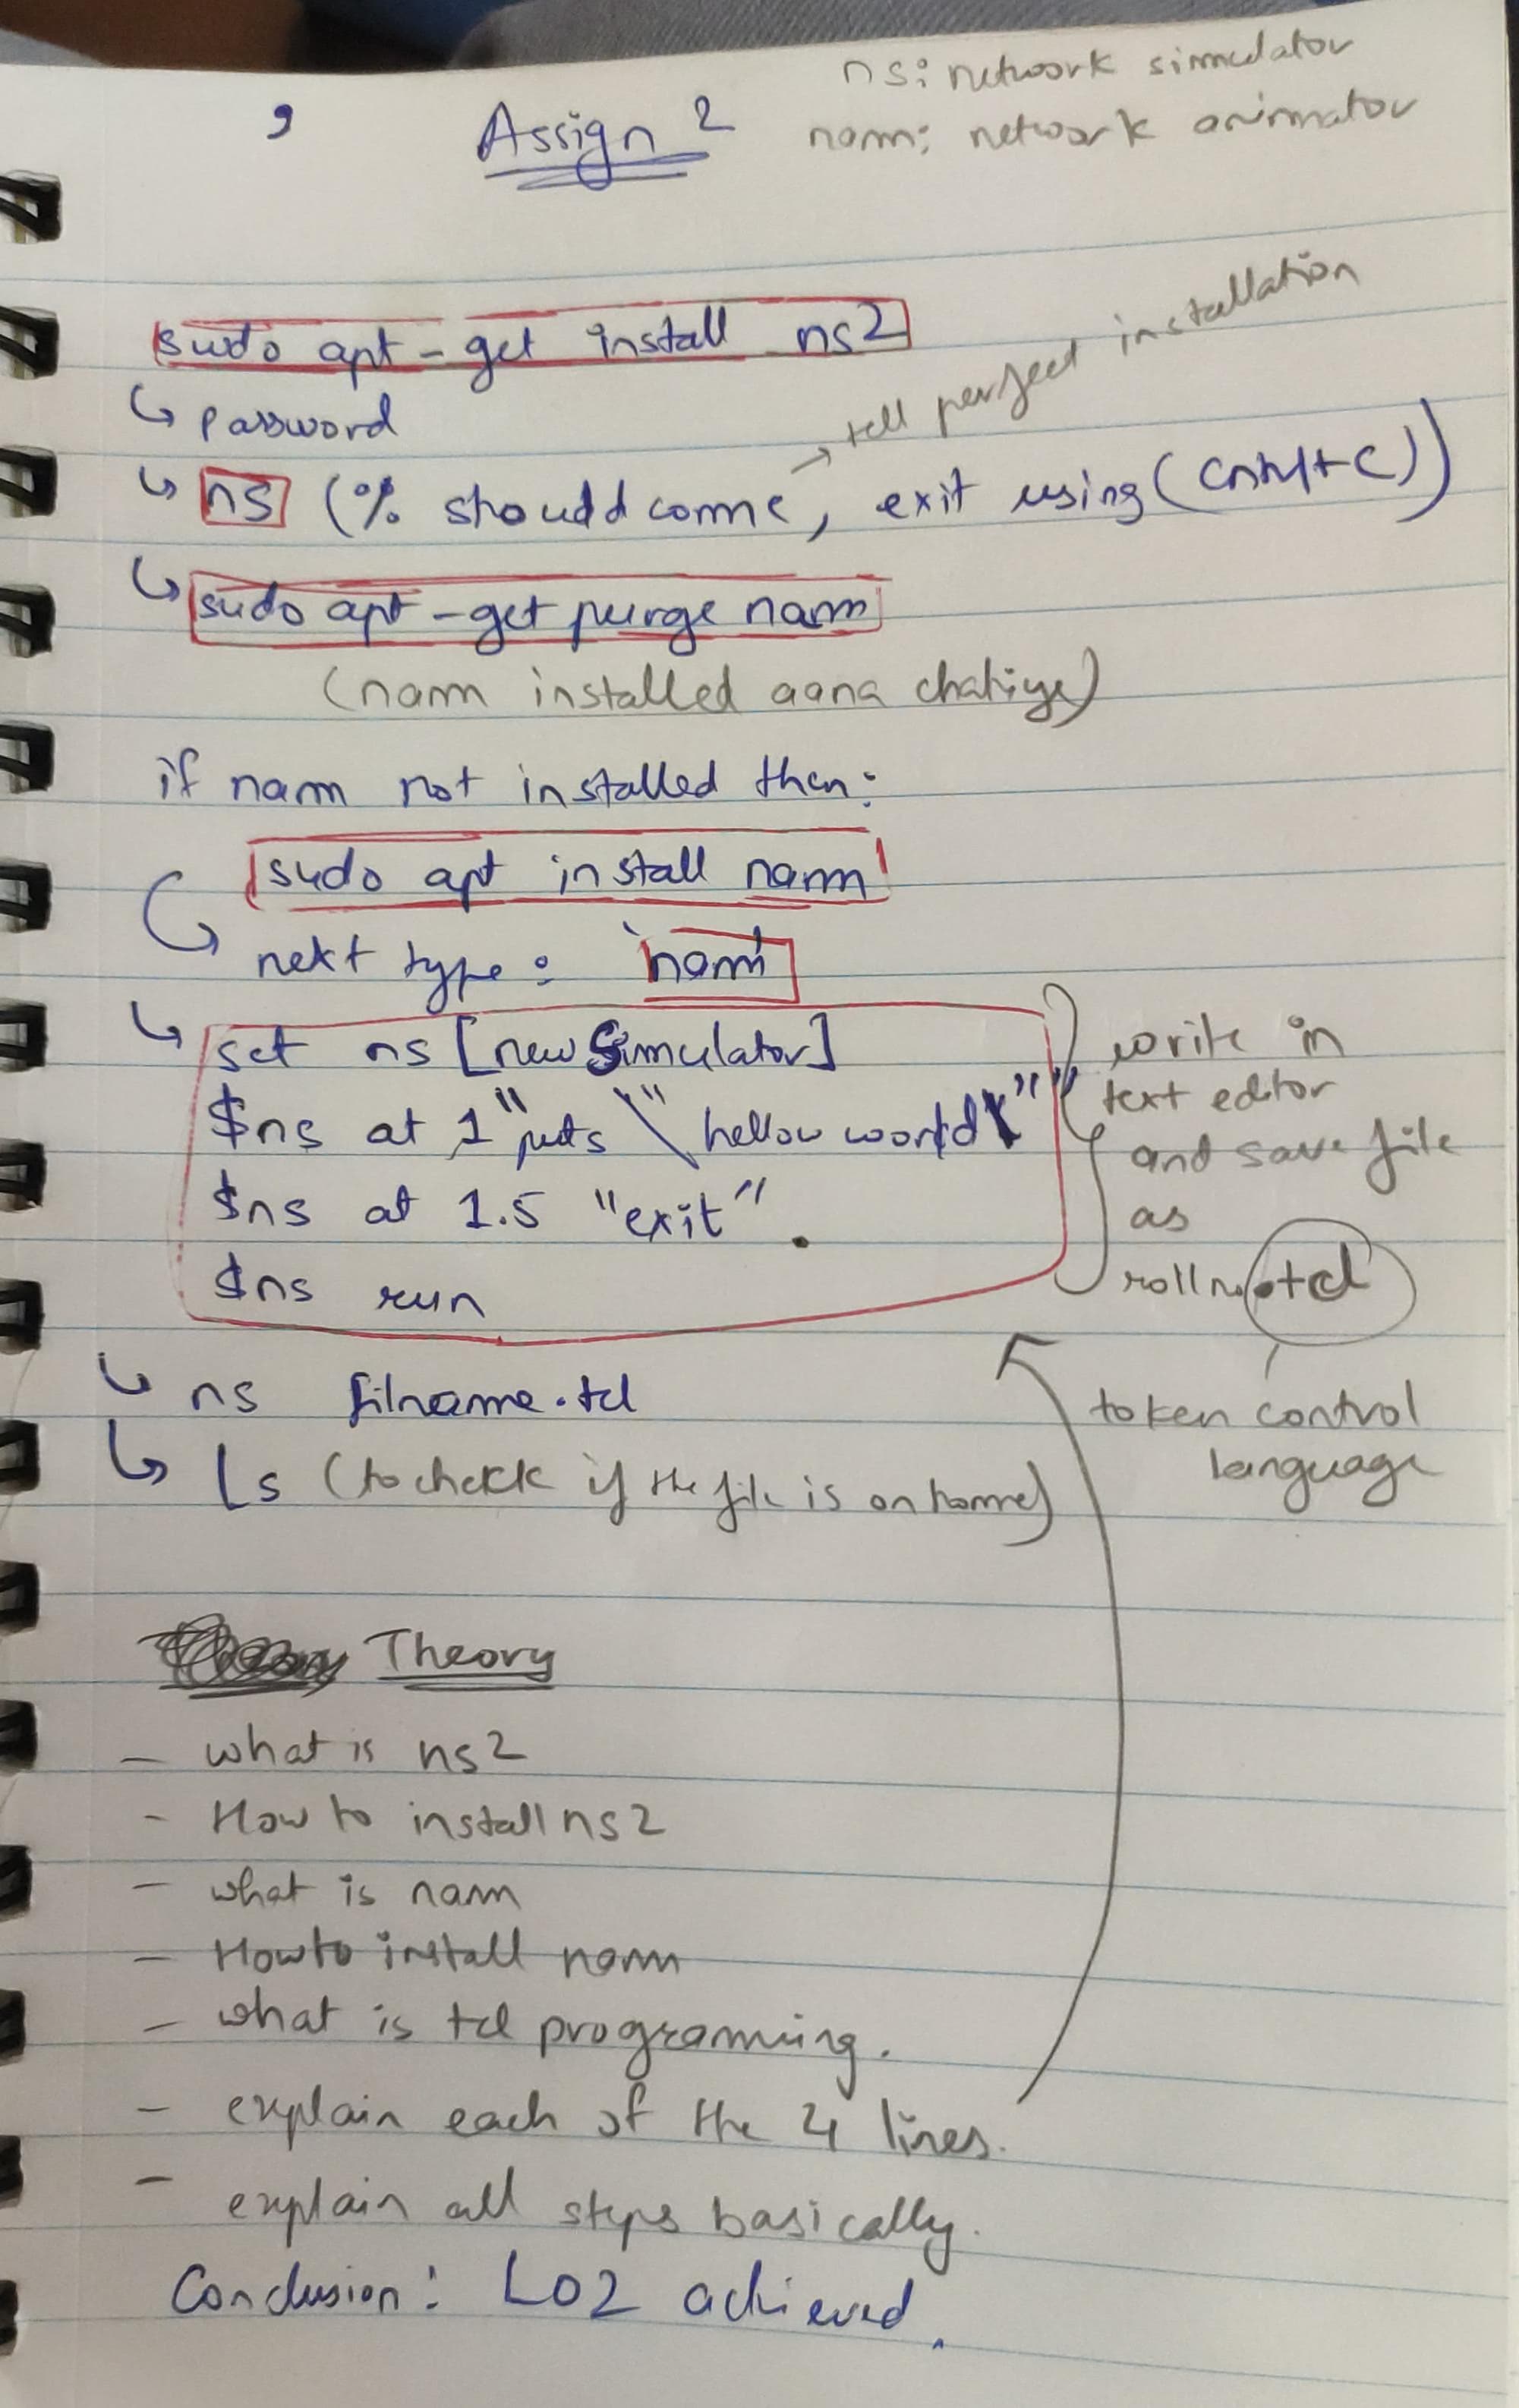 ns: network simulator
Assign 2
nam: network animator
sudo apt-get install ns2
↳ password
→ tell perfect installation
↳ ns (% should come, exit using (Cntrl+C))
↳ sudo apt-get purge nam
(nam installed aana chahiye)
if nam not installed then:
sudo apt install nam
↳ next type: 'nam'
↳ set ns [new Simulator]
$ns at 1 "puts \"hellow world\""
$ns at 1.5 "exit".
$ns run
write in
text editor
and save file
as
rollno.tcl
token control
language
↳ ns filname.tcl
↳ Ls (to check if the file is on home)
Theory
- what is ns2
- How to install ns2
- what is nam
- How to install nam
- what is tcl programing.
- explain each of the 4 lines.
- explain all steps basically.
Conclusion: LO2 achieved.